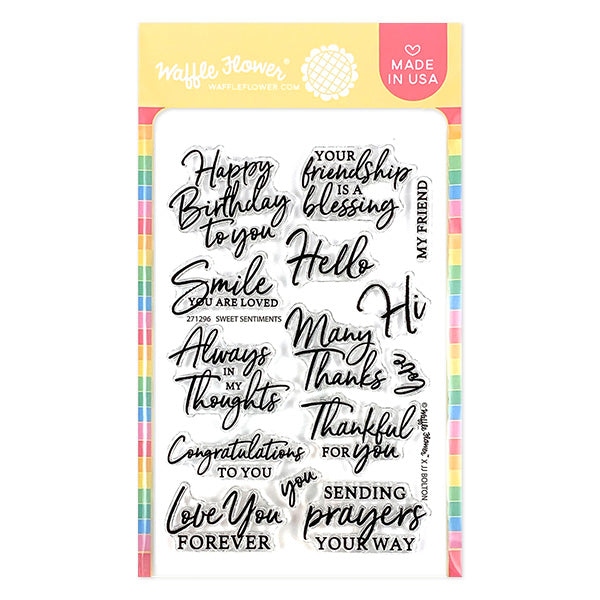 Waffle Flower®
WAFFLEFLOWER.COM
MADE
IN USA
Happy
Birthday
to you
YOUR
friendship
IS A
blessing
MY FRIEND
Hello
Smile
YOU ARE LOVED
271296 SWEET SENTIMENTS
Hi
Many
Thanks
love
Always
IN
MY
Thoughts
Thankful
FOR you
Congratulations
TO YOU
you
Love You
FOREVER
SENDING
prayers
YOUR WAY
© Waffle Flower® X JJ BOLTON